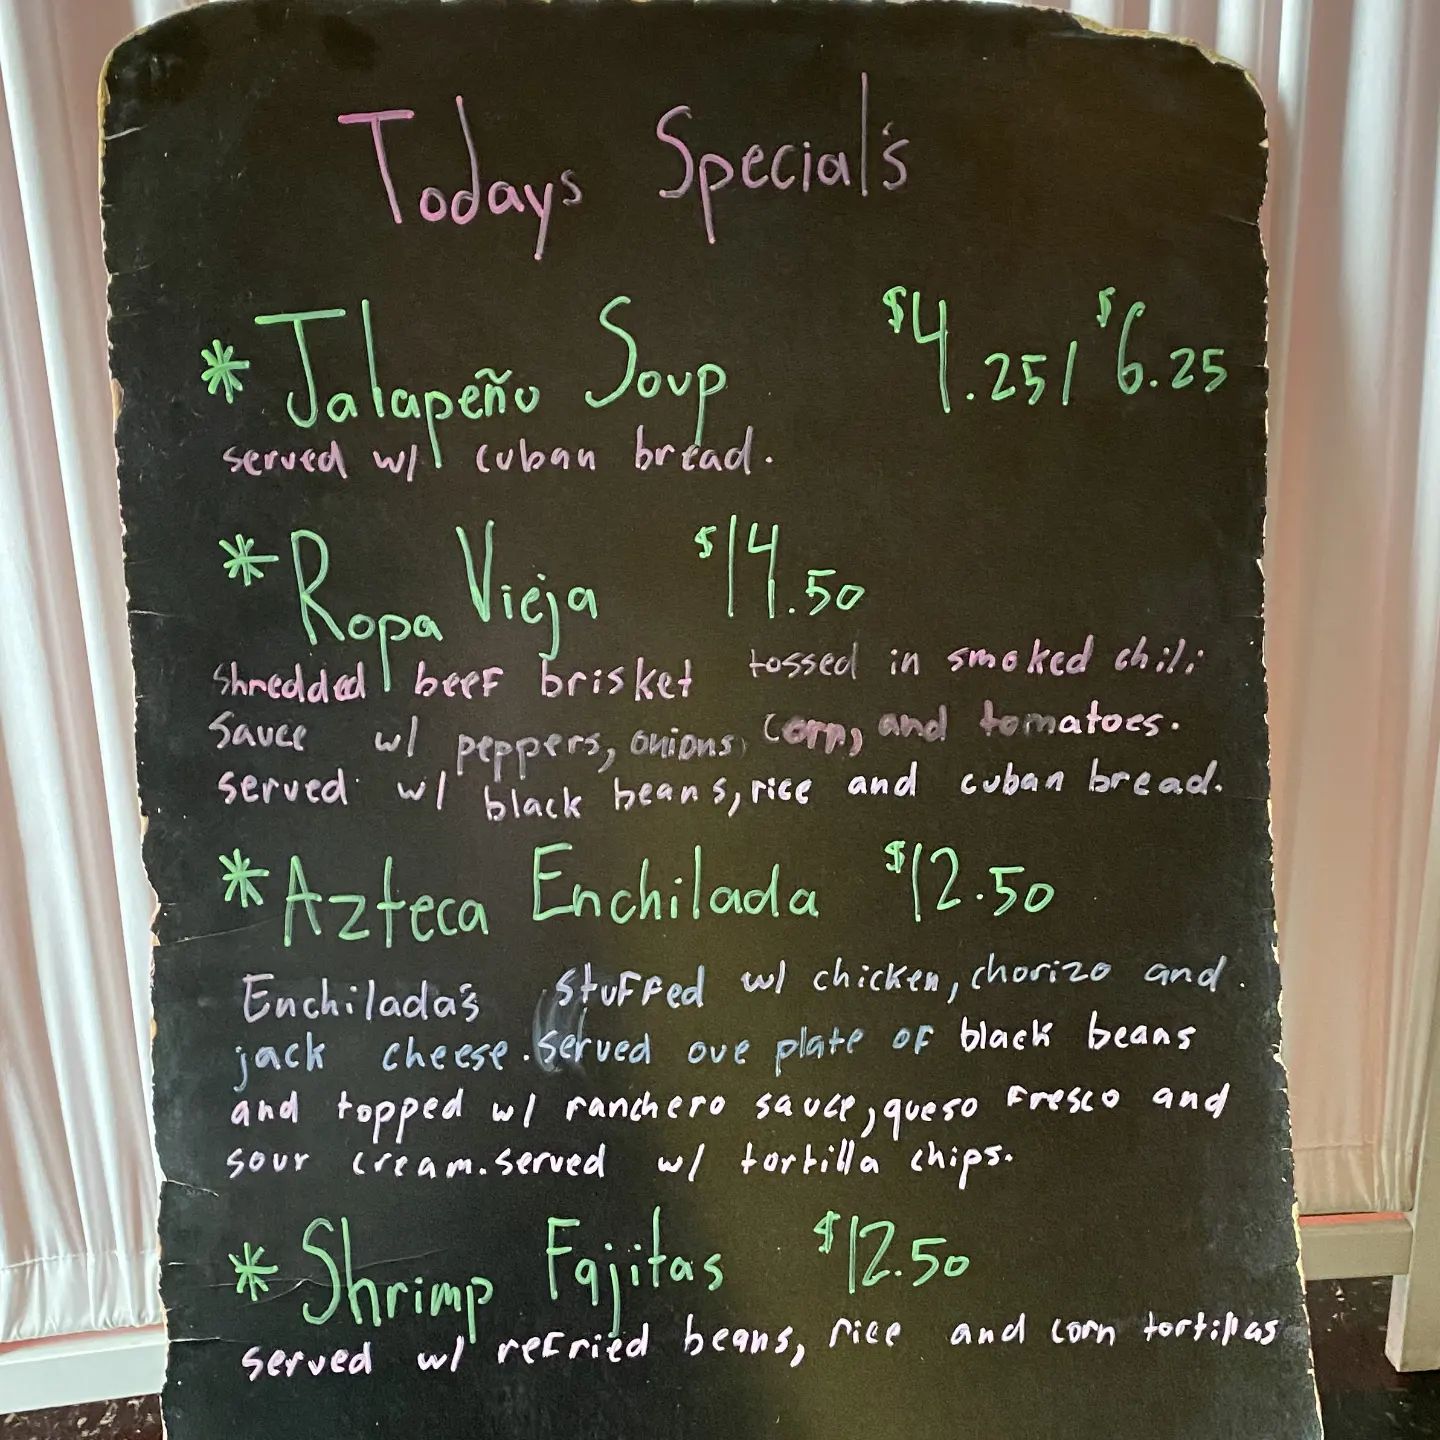 Todays Special's
* Jalapeño Soup $4.25/$6.25
served w/ cuban bread.
* Ropa Vieja $14.50
shredded beef brisket tossed in smoked chili
sauce w/ peppers, onions, corn, and tomatoes.
served w/ black beans, rice and cuban bread.
* Azteca Enchilada $12.50
Enchilada's stuffed w/ chicken, chorizo and
jack cheese. Served ove plate of black beans
and topped w/ ranchero sauce, queso fresco and
sour cream. served w/ tortilla chips.
* Shrimp Fajitas $12.50
served w/ refried beans, rice and corn tortillas